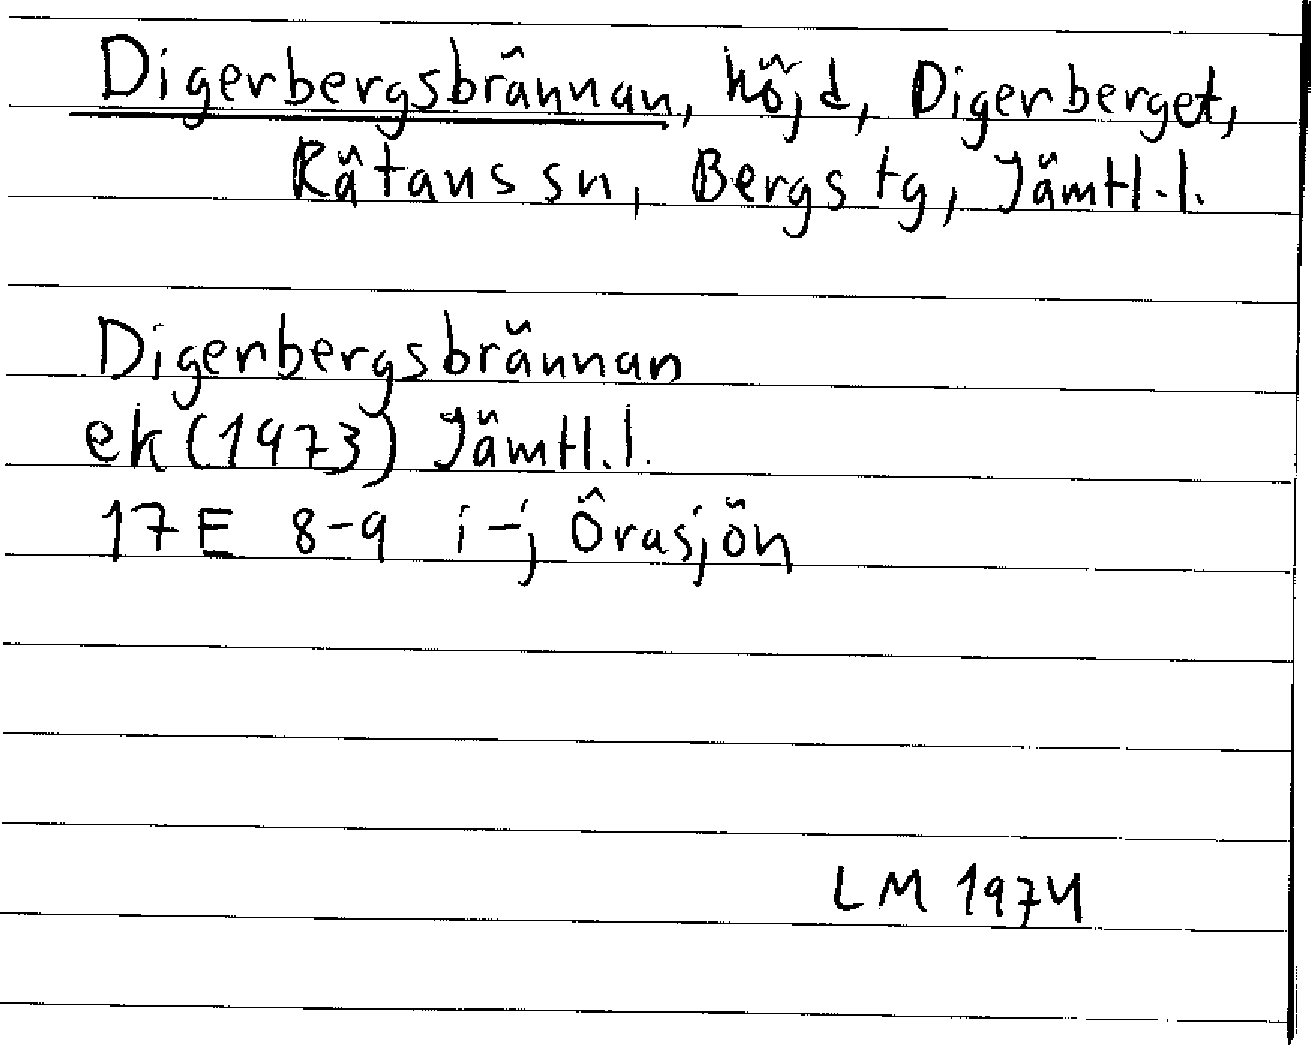 Digerbergsbrännan, höjd, Digerberget,
Rätans sn, Bergs tg, Jämtl.l.
Digerbergsbrännan
ek (1973) Jämtl.l.
17 E 8-9 i-j Örasjön
LM 1974